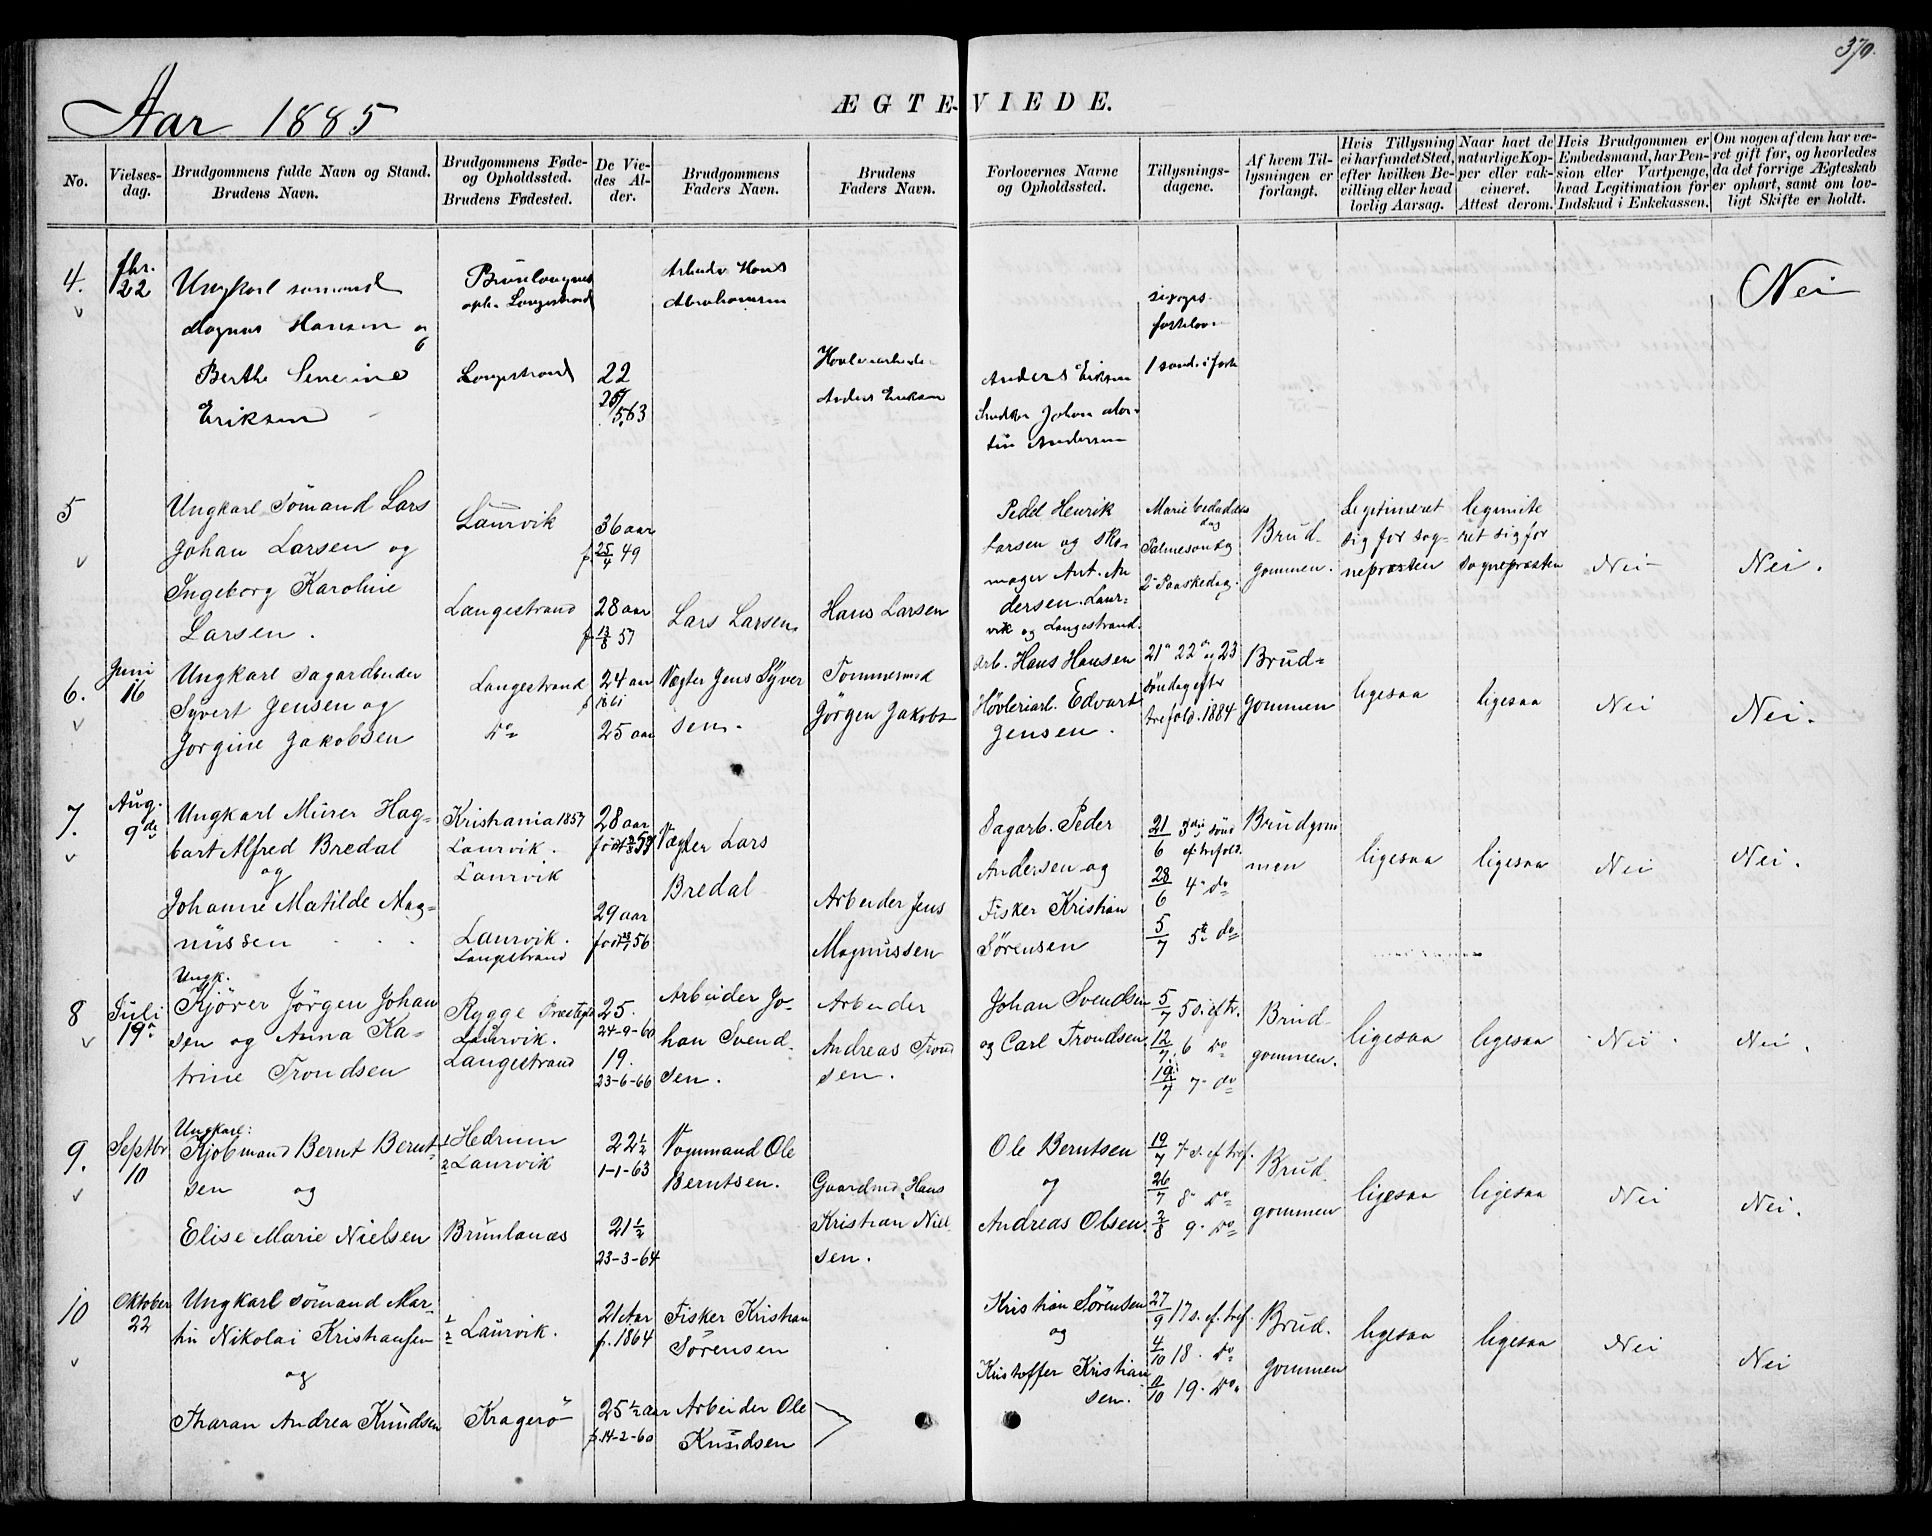 370.
Aar 1885
ÆGTEVIEDE.
No.
Vielsesdag.
Brudgommens fulde Navn og Stand.
Brudens Navn.
Brudgommens Føde-
og Opholdssted.
Brudens Fødested.
De Vie-
des Al-
der.
Brudgommens
Faders Navn.
Brudens
Faders Navn.
Forlovernes Navne
og Opholdssted.
Tillysnings-
dagene.
Af hvem Til-
lysningen er
forlangt.
Hvis Tillysning
ei har fundet Sted,
efter hvilken Be-
villing eller hvad
lovlig Aarsag.
Naar havt de
naturlige Kop-
per eller vak-
cineret.
Attest derom.
Hvis Brudgommen er
Embedsmand, har Pen-
sion eller Vartpenge,
hvad Legitimation for
Indskud i Enkekassen.
Om nogen af dem har væ-
ret gift før, og hvorledes
da det forrige Ægteskab
er ophørt, samt om lov-
ligt Skifte er holdt.
4.
22
Ungkarl sømand
Magnus Hansen og
Berthe Severine
Eriksen
oph. Langestrand
Langestrand
22
Arbeider Hans
Abrahamsen
Anders Eriksen
Anders Eriksen
Johan Mar-
tin Andersen
Nei
5
Ungkarl Sömand Lars
Johan Larsen og
Ingeborg Karoline
Larsen.
Laurvik
Langestrand
36 aar
f. 25/4 49
28 aar
f. 13/8 57
Lars Larsen
Hans Larsen
Henrik
Larsen og Sko-
mager Ant. An
dersen. Laur-
vik og Langestrand.
Marie bebudelses
dag
Palmesondag
2 Paaskedag.
Brud-
gommen.
Legitimeret
sig for sog-
nepræsten
legimite
ret sig for
sognepræsten
Nei
Nei.
6.
Juni
16
Ungkarl Sagarbeider
Syvert Jensen og
Jorgine Jakobsen
Langestrand
Do
24 aar
25 aar
Vægter Jens Syver
sen.
Tømmermd
Jörgen Jakobs
Arb. Hans Hansen
Høvleriarb. Edvart
Jensen.
21 22 og 23
Søndag eftr
trefold. 1884
Brud-
gommen
ligesaa
ligesaa
Nei
Nei.
7.
Aug.
9de
Ungkarl Murer Hag-
bart Alfred Bredal
og
Johanne Matilde Mag-
nussen
Kristiania 1857
Laurvik.
Laurvik
Laurvik.
Langestrand
28 aar
29 aar
Vægter Lars
Bredal
Arbeider Jens
Magnussen
Sagarb. Peder
Andersen og
Fisker Kristian
Sørensen
21/6 3die sönd
ef. trefold.
28/6 4 do
5/7 5te do
Brudgom
men
ligesaa
ligesaa
Nei
Nei.
8
Juli
19
Ungk.
Kjörer Jörgen Johan
sen og Anna Ka-
trine Trondsen
Rygge Præstegd
Laurvik.
Langestrand
25.
24-9-60
19.
23-6-66
Arbeider Jo-
han Svend-
sen.
Arbeider
Andreas Trond
sen.
Johan Svendsen
og Carl Trondsen.
5/7 5 s. eftr.
12/7 6 Do
19/7 7 do
Brud
gommen.
ligesaa
ligesaa
Nei
Nei.
9.
Septbr
10
Ungkarl:
Kjöbmand Bernt Bernt-
sen og
Elise Marie Nielsen
1 Hedrum
2 Laurvik
Brunlanæs
22½
1-1-63
21½
23-3-64
Vognmand Ole
Berntsen.
Gaardmd. Hans
Kristian Niel
sen.
Ole Berntsen
og
Andreas Olsen.
19/7 7 s. ef tref.
26/7 8 Do
2/8 9. Do
Brud.
gommen
ligesaa
ligesaa
Nei
Nei.
10
Oktober
22
Ungkarl Sömand Mar-
tin Nikolai Kristiansen
og
Tharan Andrea Knudsen
½ Laurvik.
Kragerö
21 Aar
f. 1864
25½ aar
f. 14-2-60
Fisker Kristian
Sörensen
Arbeider Ole
Knudsen
Kristian Sörensen
og
Kristoffer Kristian
sen.
27/9 17 s. ef. tref.
4/10 18. Do
11/10 19. Do
Brud.
gommen
ligesaa
ligesaa
Nei
Nei